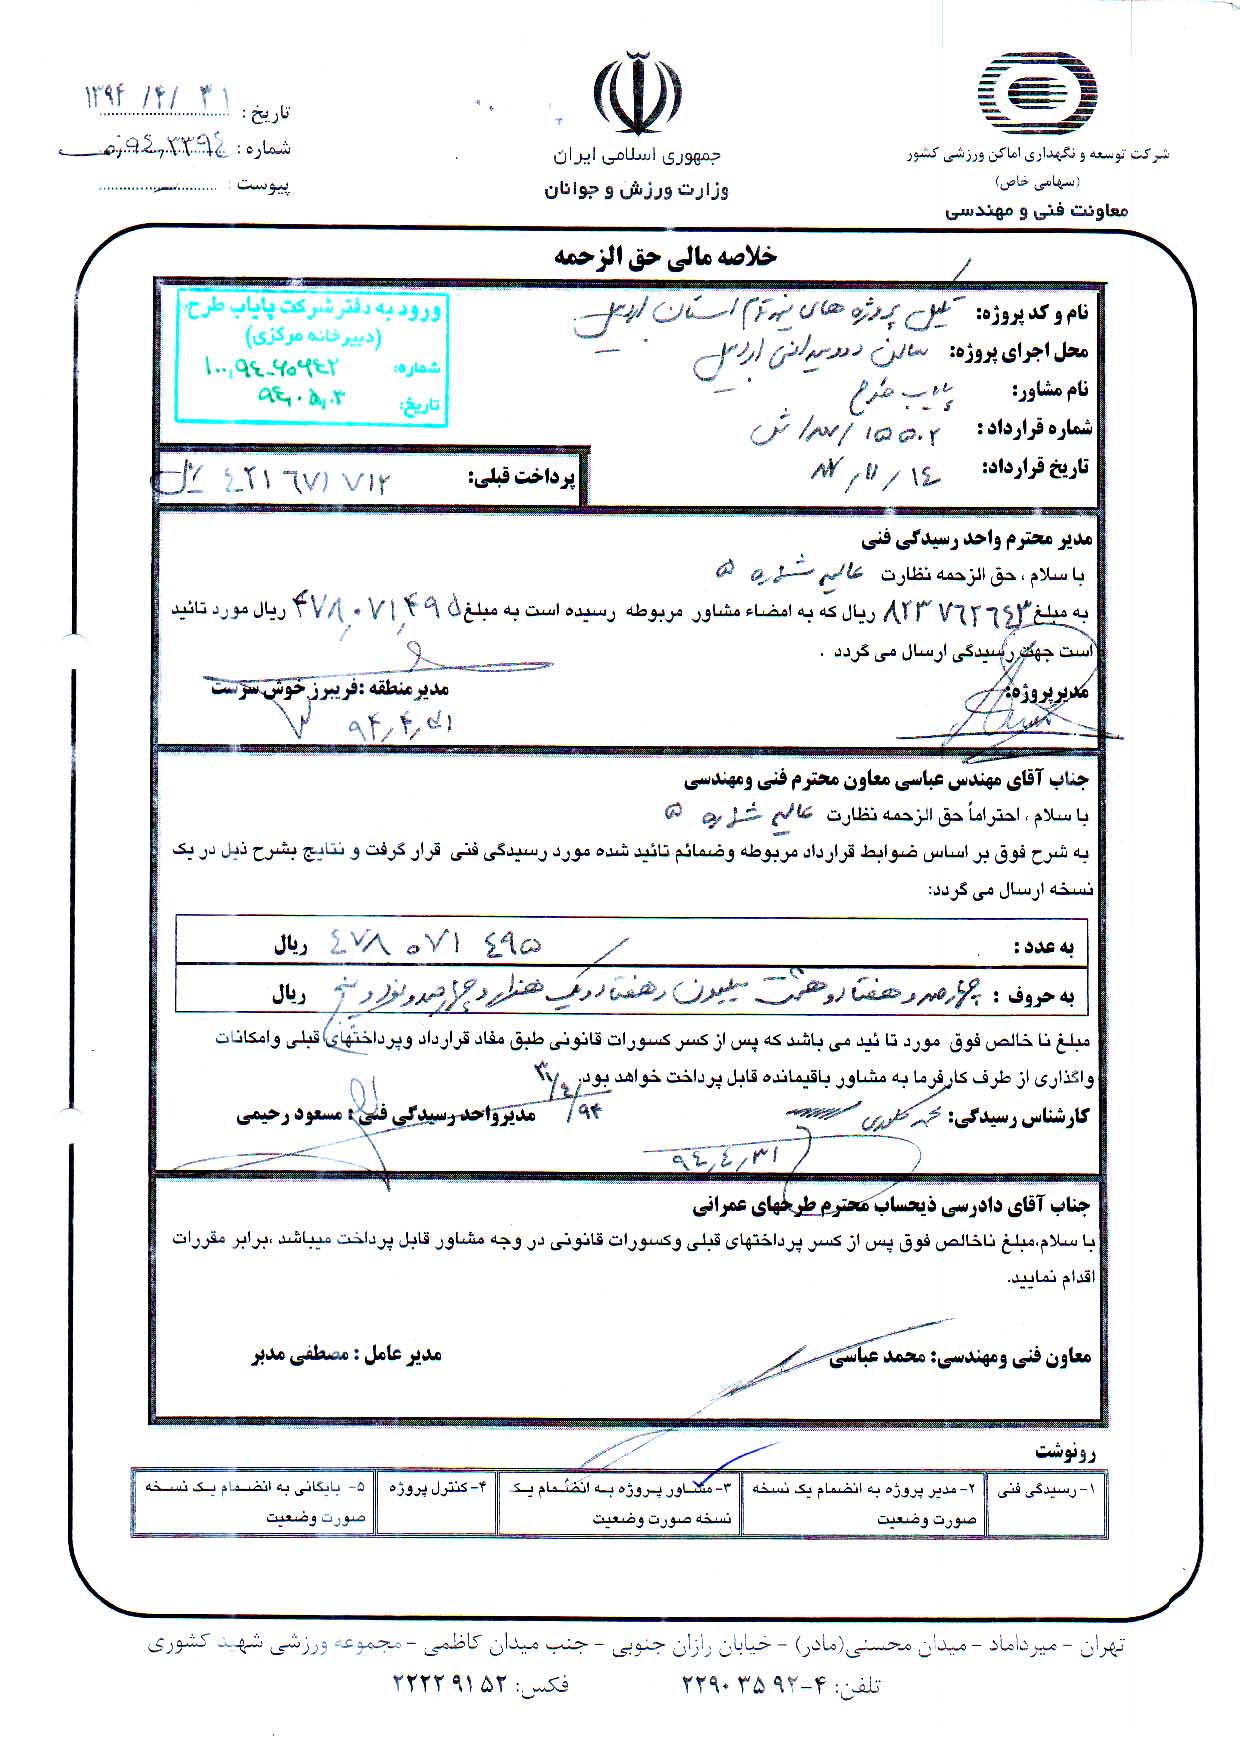 شرکت توسعه و نگهداری اماکن ورزشی کشور
(سهامی خاص)
معاونت فنی و مهندسی
جمهوری اسلامی ایران
وزارت ورزش و جوانان
تاریخ : ۱۳۹۴/۴/۳۱
شماره :
پیوست :
خلاصه مالی حق الزحمه
نام و کد پروژه: تکمیل پروژه های نیمه تمام استان اردبیل
محل اجرای پروژه: سالن دوومیدانی اردبیل
نام مشاور: پایاب طرح
شماره قرارداد : ۱۵۵۰۲/
تاریخ قرارداد: ۸۷/۱۱/۱۴
ورود به دفتر شرکت پایاب طرح،
(دبیرخانه مرکزی)
شماره: ۱۰۰,۹۴-۲۰۶۴۲
تاریخ: ۹۴,۰۵,۰۳
پرداخت قبلی: ۴۲۱ ۶۷۱ ۷۱۲ ریال
مدیر محترم واحد رسیدگی فنی
با سلام ، حق الزحمه نظارت عالیه شماره ۵
به مبلغ ۸۲۳ ۷۶۲ ۶۴۳ ریال که به امضاء مشاور مربوطه رسیده است به مبلغ ۴۷۸,۰۷۱,۴۹۵ ریال مورد تائید
است جهت رسیدگی ارسال می گردد .
مدیرپروژه:
مدیرمنطقه :فریبرز خوش سرشت
جناب آقای مهندس عباسی معاون محترم فنی ومهندسی
با سلام ، احتراماً حق الزحمه نظارت عالیه شماره ۵
به شرح فوق بر اساس ضوابط قرارداد مربوطه وضمائم تائید شده مورد رسیدگی فنی قرار گرفت و نتایج بشرح ذیل در یک
نسخه ارسال می گردد:
به عدد : ۴۷۸ ۰۷۱ ۴۹۵ ریال
به حروف : چهارصد و هفتاد و هشت میلیون و هفتاد و یک هزار و چهارصد و نود و پنج ریال
مبلغ نا خالص فوق مورد تا ئید می باشد که پس از کسر کسورات قانونی طبق مفاد قرارداد وپرداختهای قبلی وامکانات
واگذاری از طرف کارفرما به مشاور باقیمانده قابل پرداخت خواهد بود.
کارشناس رسیدگی:
مدیرواحد رسیدگی فنی : مسعود رحیمی
۹۴/۴/۳۱
۹۴,۴,۳۱
جناب آقای دادرسی ذیحساب محترم طرحهای عمرانی
با سلام،مبلغ ناخالص فوق پس از کسر پرداختهای قبلی وکسورات قانونی در وجه مشاور قابل پرداخت میباشد ،برابر مقررات
اقدام نمایید.
معاون فنی ومهندسی: محمد عباسی
مدیر عامل : مصطفی مدبر
رونوشت
۱-رسیدگی فنی
۲-مدیر پروژه به انضمام یک نسخه
صورت وضعیت
۳-مشاور پروژه به انضمام یک
نسخه صورت وضعیت
۴-کنترل پروژه
۵- بایگانی به انضمام یک نسخه
صورت وضعیت
تهران - میرداماد - میدان محسنی(مادر) - خیابان رازان جنوبی - جنب میدان کاظمی - مجموعه ورزشی شهید کشوری
تلفن: ۴-۹۲ ۳۵ ۲۲۹۰ فکس: ۵۲ ۹۱ ۲۲۲۲